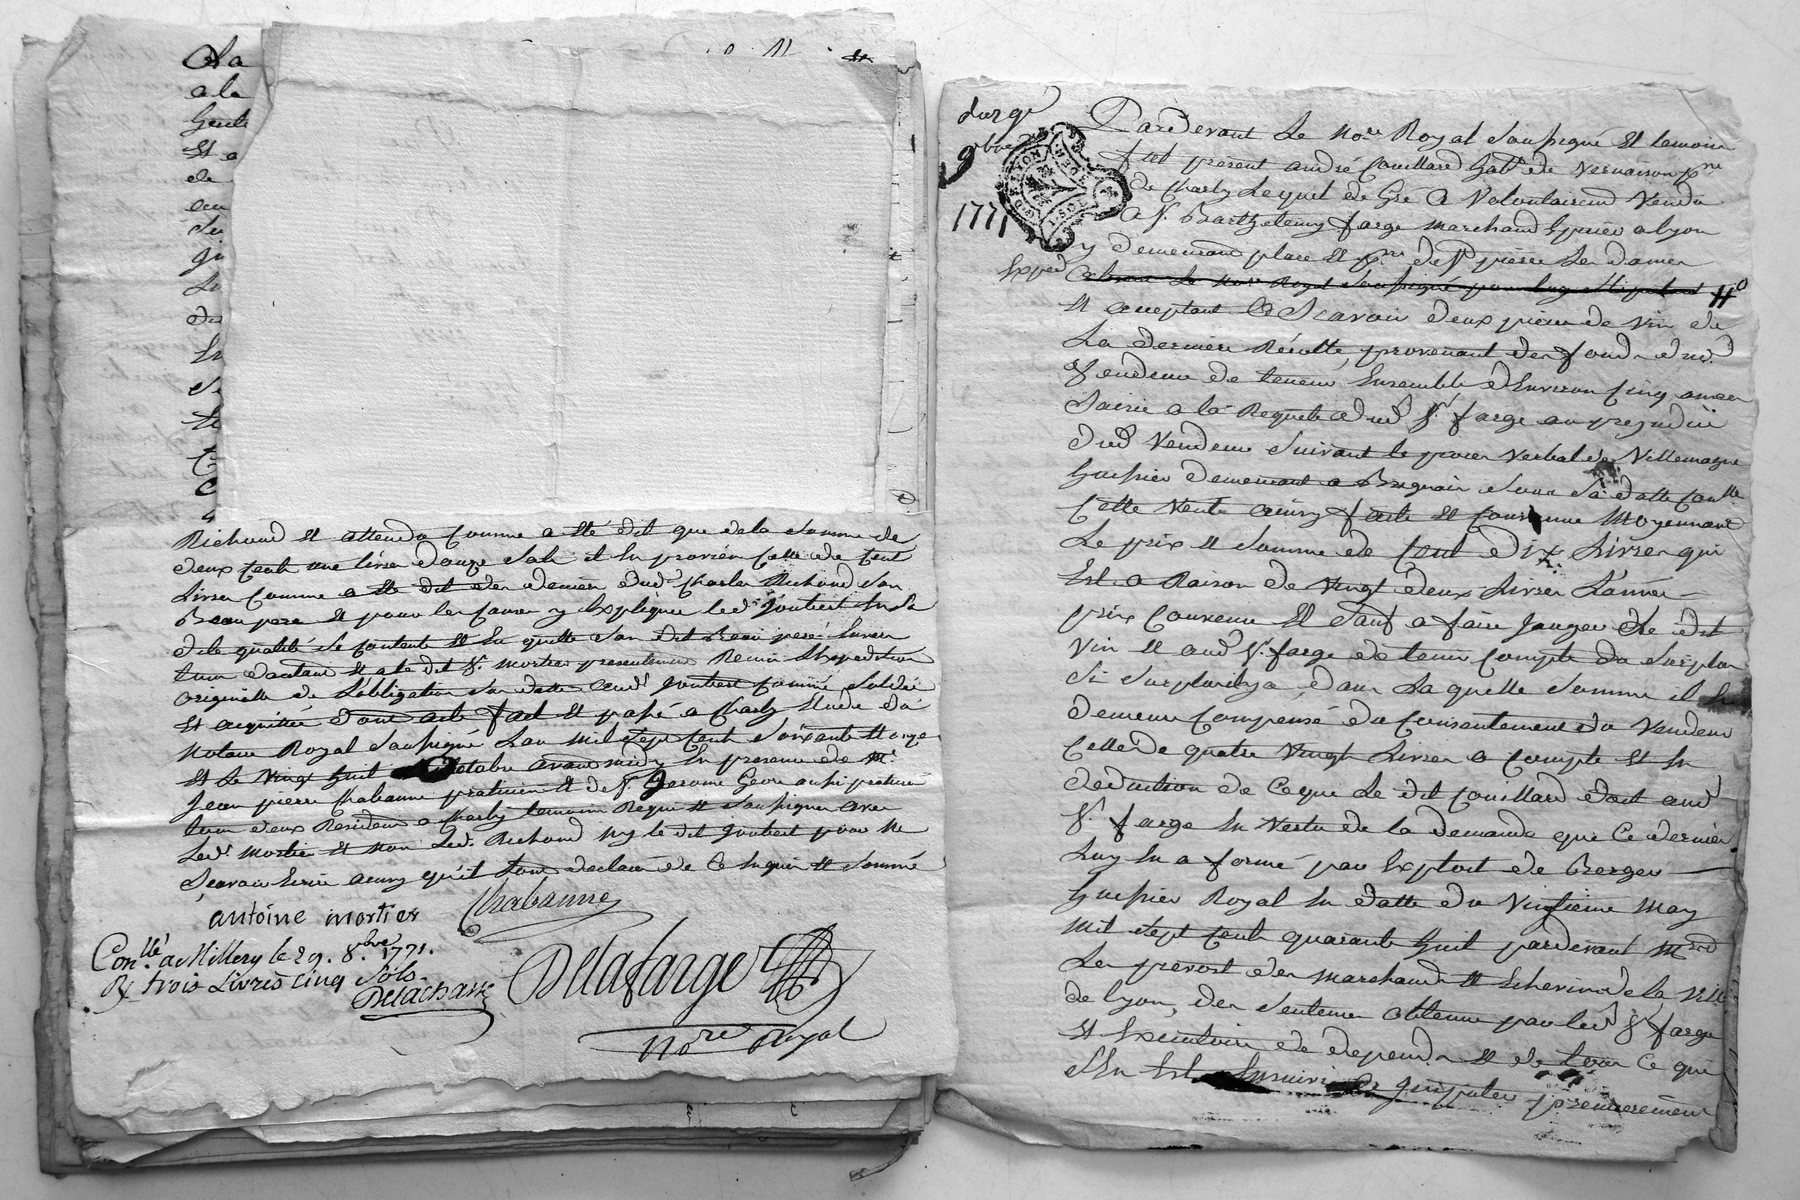 Cla
a la
et a
de
Richard et attendu comme a été dit que de la somme de
deux cent une livre douze sols il en provien celle de cent
livres comme a été dit des deniers dud. Charles Richard son
Beau pere et pour les causes y Expliquée led. Joubert En la
dite qualité se contente et En quitte son dit Beau pere Envers
tous dactant et a led. dit Sr. Mortier presentement Remis l'Expedition
originelle de l'obligation sus datte aud. Joubert comme soldée
et acquittée dont acte fait et passé a Charly Etude du
Notaire Royal soussigné L'an mil sept cent soixante et onze
et le vingt huit octobre avant midy En presence de Me.
Jean pierre Chabanne praticien et de Sr. Jerome Geon aussi praticien
tous deux Residens a Charly temoins Requis et soussignés avec
led. Mortier et non led. Richard ny le dit Joubert pour ne
sçavoir Ecrire ainsy qu'il sont declaré de ce Enquis et sommé
Chabanne
antoine mortier
Conllé. a Millery le 29. 8.bre 1771.
Rx trois Livres cinq Sols.
Delachasse
Delafarge
Nore Royal
9bre
1771
Exped
Pardevant Le Nore Royal soussigné et temoins
fut present andré Couillard habt. de Vernaison psse
de Charly Lequel de Gré a Volontairemt Vendu
a Sr. Barthelemy farge marchand Epicier a Lyon
y demeurant place et psse de St pierre Les dames
le Nore Royal soussigné pour luy stipulant #
et acceptant Sçavoir deux pieces de vin de
La derniere Récolte, provenant des fonds dud.
Vendeur de teneur Ensemble d'Environ Cinq annees
Saisie a la Requete dud Sr. farge au prejudice
dud Vendeur suivant le procès Verbal de Villemagne
huissier demeurant a Brignais sous sa datte Conllé
Cette Vente ainsy faite et Convenue Moyennant
Le prix et somme de Cent dix Livres qui
Est a Raison de Vingt deux Livres L'année
prix Convenu Et sauf a faire Jauger Le dit
Vin et aud Sr. farge de tenir Compte du surplus
Si surplus il y a, dans La quelle somme il En
demeure Compensé du Consentement du Vendeur
Celle de quatre Vingt Livres a Compte et En
deduction de Ce que Le dit Couillard doit aud
Sr. farge En Vertu de la demande que Ce dernier
Luy En a formé par Exploit de Berger
huissier Royal En datte du Vingtieme May
Mil sept cent quarante huit pardevant Mrs
Les prevost des marchands et Echevins de la Ville
de Lyon, des sentences obtenue par led Sr farge
et Executoire de depends et de tous Ce qui
S'En Est Ensuivi, premierement